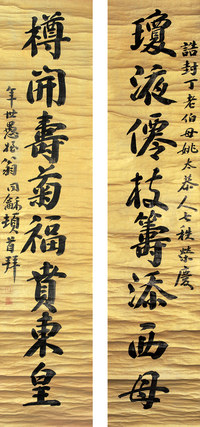 誥封丁老伯母姚太恭人七秩榮慶
瓊液僊枝籌添西母
樽開壽菊福賁東皇
年世愚姪翁同龢頓首拜